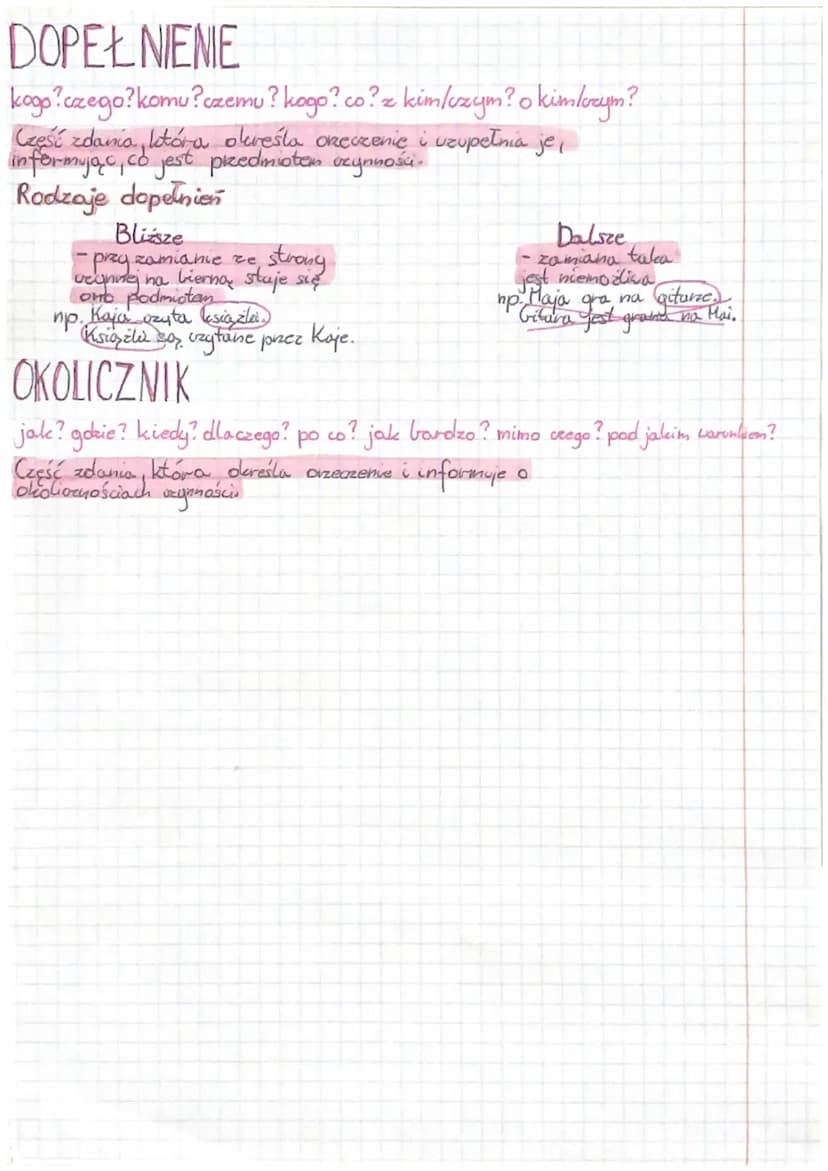 DOPEŁNIENIE
kogo? czego? komu? czemu? kogo? co? z kim/czym? o kim/czym?
Część zdania, która określa orzeczenie i uzupełnia je,
informując, co jest przedmiotem czynności.
Rodzaje dopełnień
Bliższe
- przy zamianie ze strony
czynnej na bierną staje się
ono podmiotem
np. Kaja czyta książki.
Książki są czytane przez Kaje.
Dalsze
- zamiana taka
jest niemożliwa
np. Maja gra na gitarze.
Gitara jest grana na Mai.
OKOLICZNIK
jak? gdzie? kiedy? dlaczego? po co? jak bardzo? mimo czego? pod jakim warunkiem?
Część zdania, która określa orzeczenie i informuje o
okolicznościach czynności